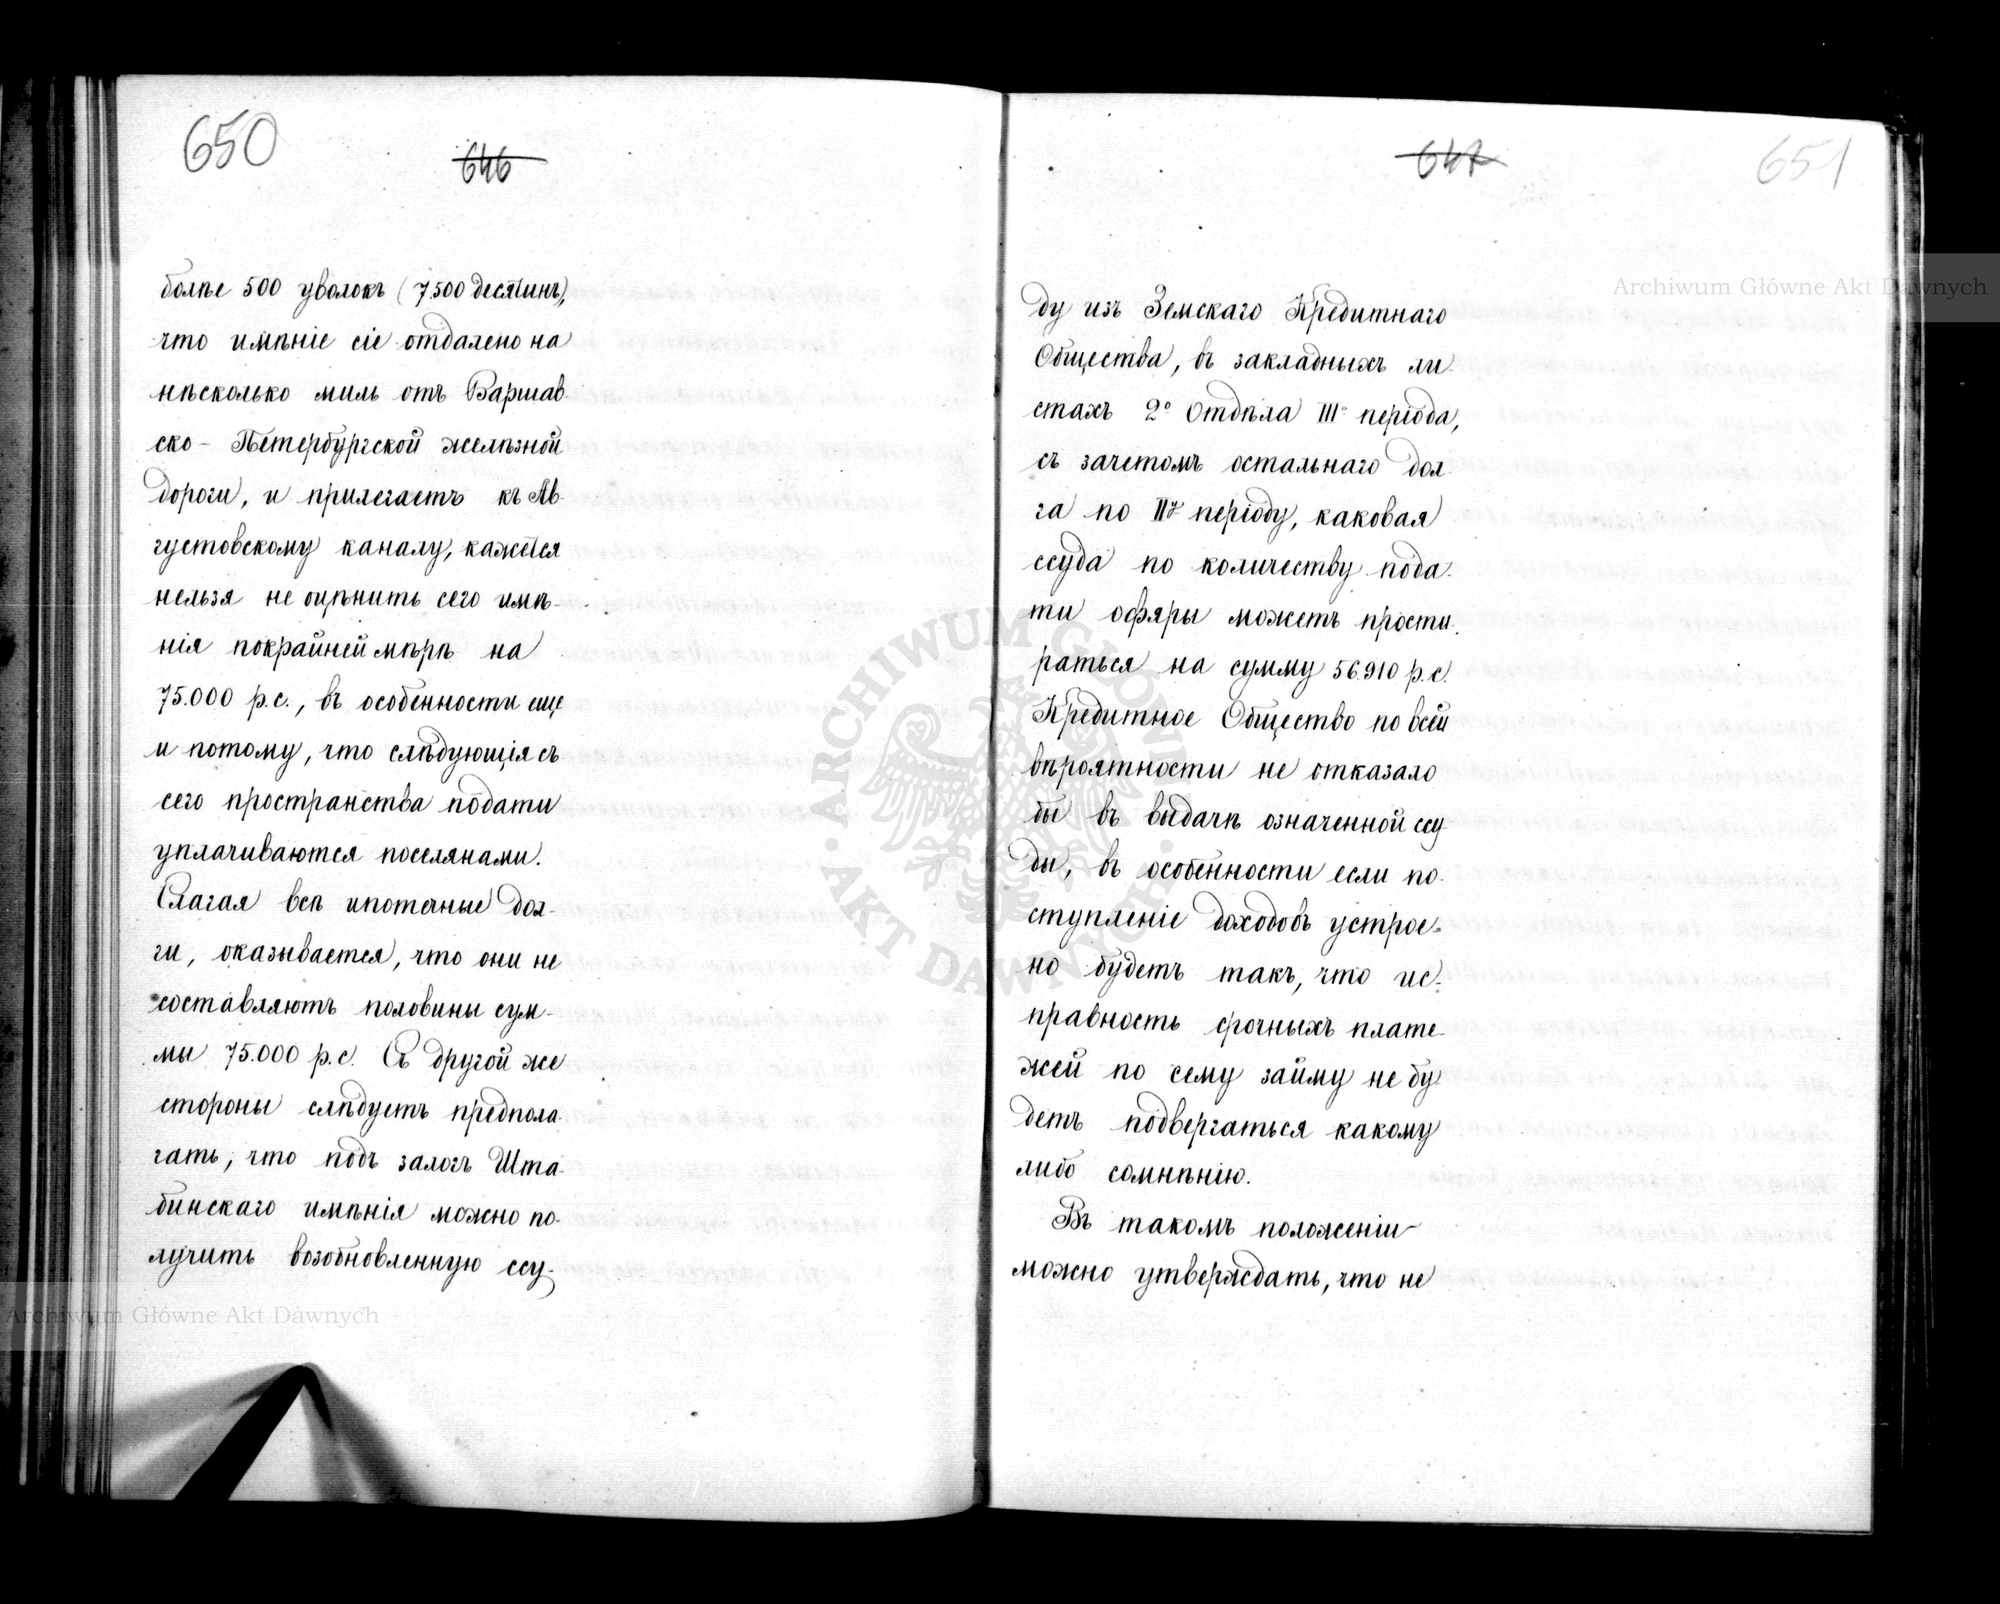 650
646
болѣе 500 уволокъ (7.500 десятинъ),
что имѣніе сіе отдалено на
нѣсколько миль отъ Варшав-
ско-Петербургской желѣзной
дороги, и прилегаетъ къ Ав-
густовскому каналу, кажется
нельзя не оцѣнить сего имѣ-
нія покрайней мѣрѣ на
75.000 р.с., въ особенности еще
и потому, что слѣдующія съ
сего пространства подати
уплачиваются поселянами.
Слагая всѣ ипотечные дол-
ги, оказывается, что они не
составляютъ половины сум-
мы 75.000 р.с. Съ другой же
стороны слѣдуетъ предпола-
гать, что подъ залогъ Шта-
бинскаго имѣнія можно по-
лучить возобновленную ссу-
647
651
ду изъ Земскаго Кредитнаго
Общества, въ закладныхъ ли-
стахъ 2º Отдѣла IIIº періода,
съ зачетомъ остальнаго дол-
га по IIу періоду, каковая
ссуда по количеству пода-
ти офяры можетъ прости-
раться на сумму 56.910 р.с.
Кредитное Общество по всей
вѣроятности не отказало
бы въ выдачѣ означенной ссу-
ды, въ особенности если по-
ступленіе доходовъ устрое-
но будетъ такъ, что ис-
правность срочныхъ плате-
жей по сему займу не бу-
детъ подвергаться какому
либо сомнѣнію.
Въ такомъ положеніи
можно утверждать, что не
Archiwum Główne Akt Dawnych
Archiwum Główne Akt Dawnych
ARCHIWUM GŁÓWNE · AKT DAWNYCH ·